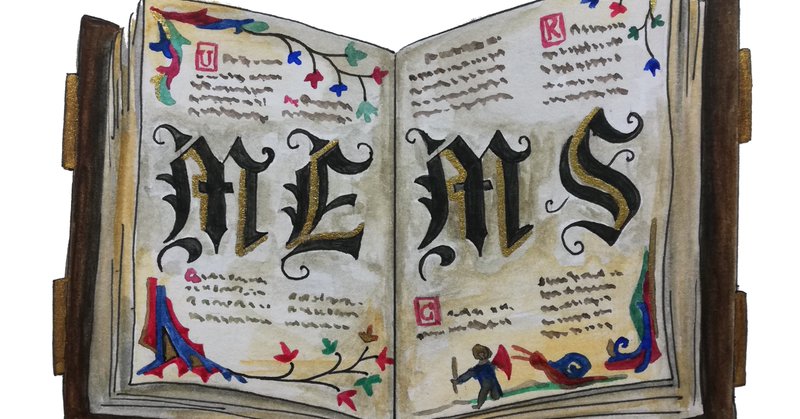 U R
MEMS
G